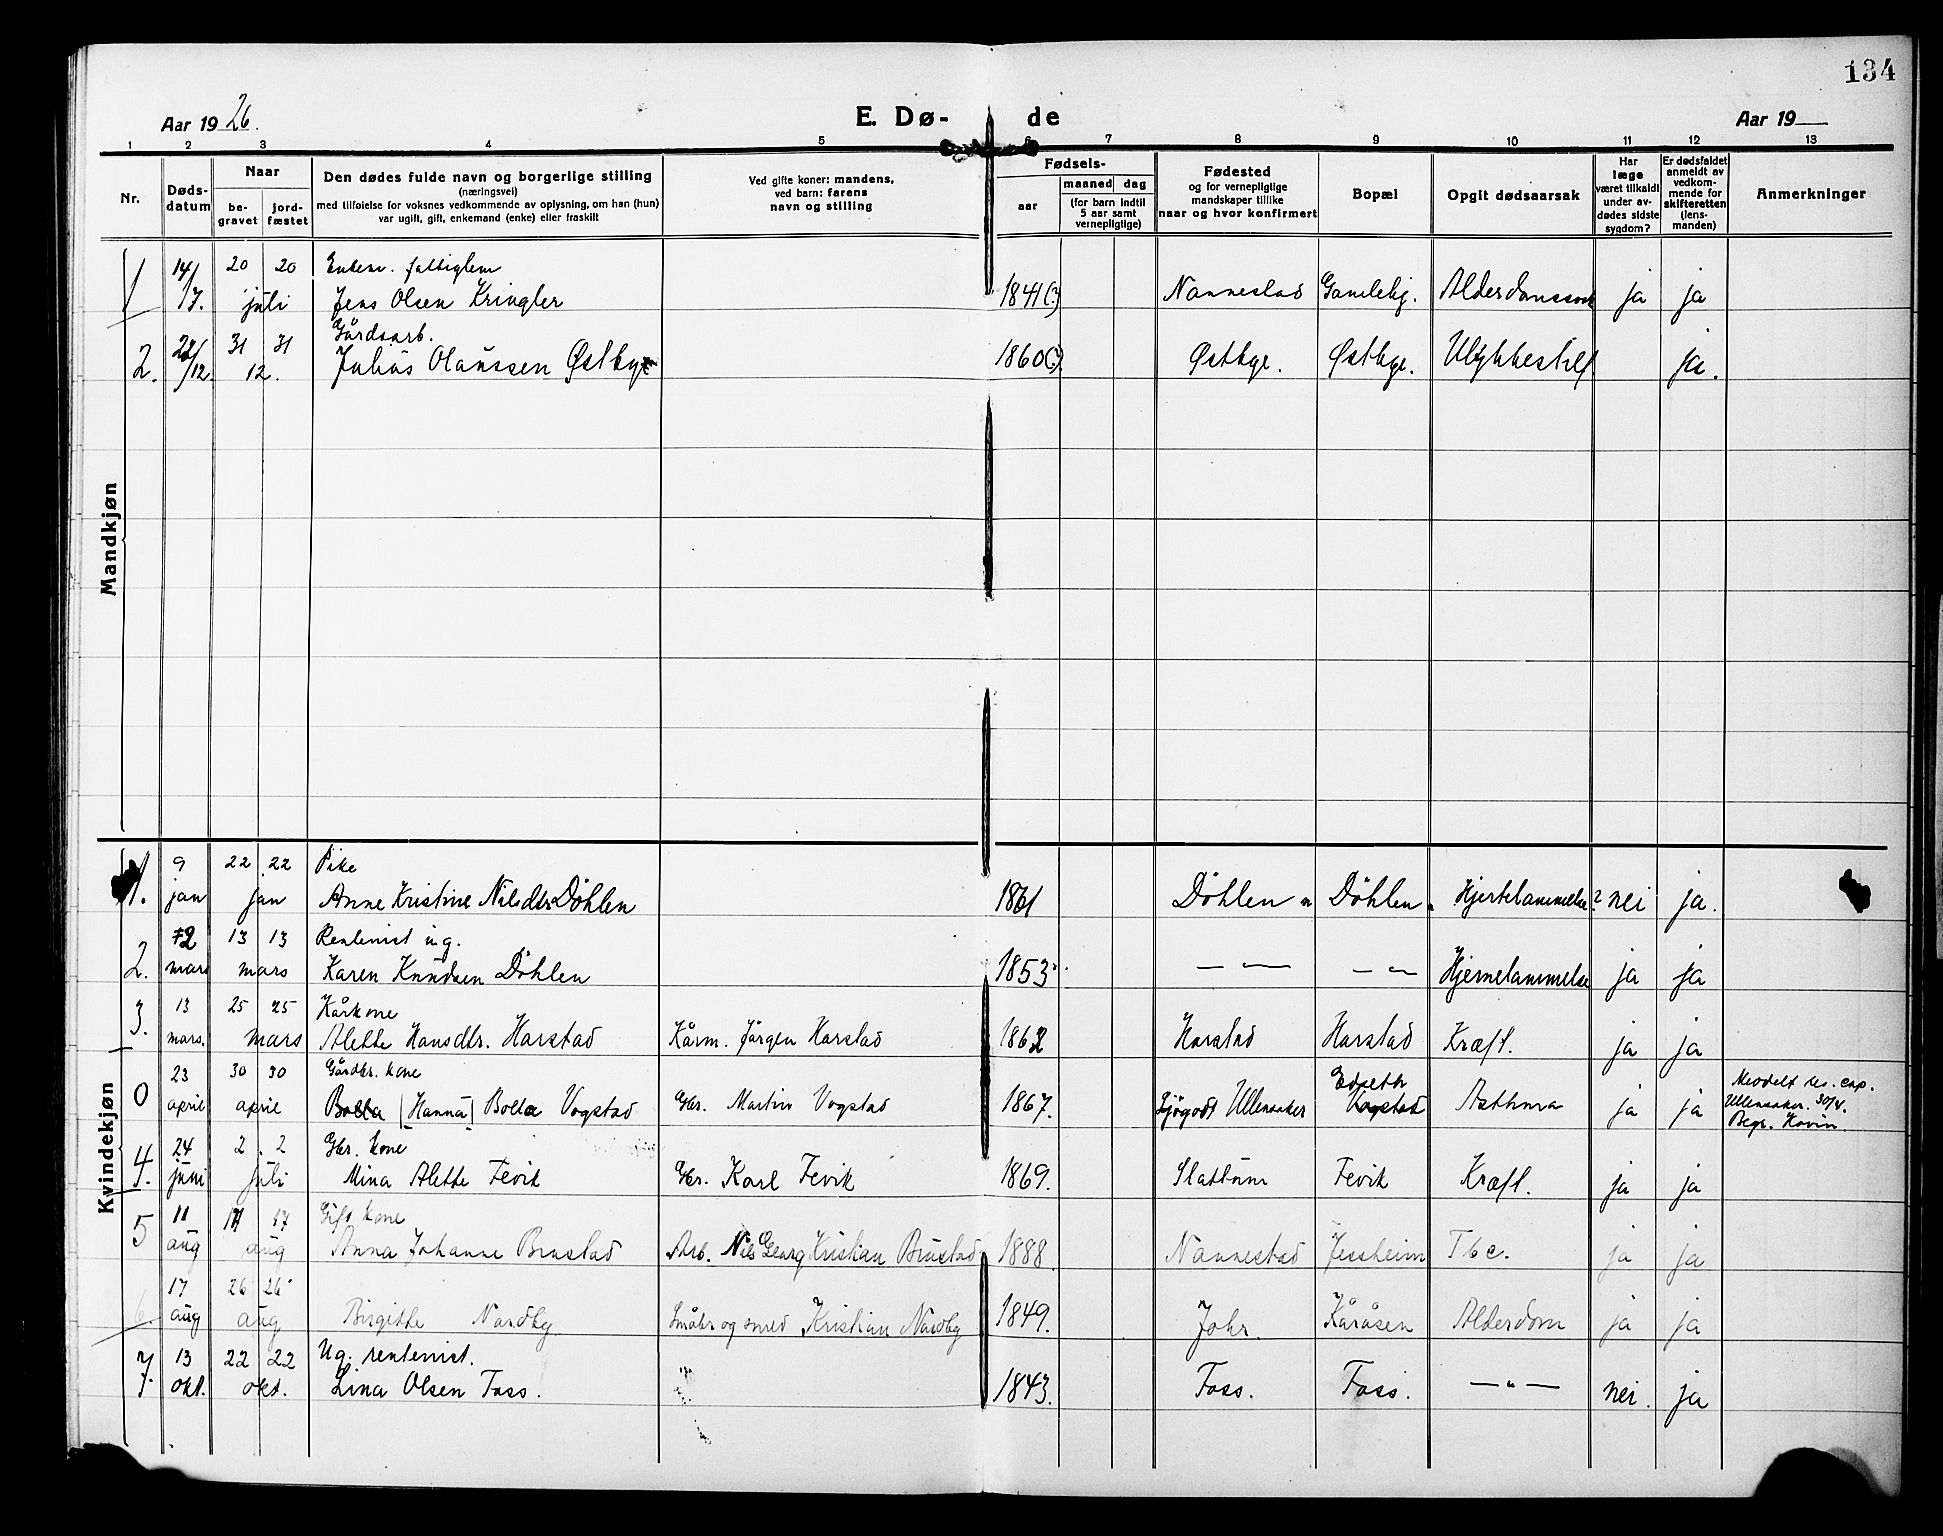 134
Aar 1926.
E. Dø-
de
Aar 19
1 2 3 4 5 6 7 8 9 10 11 12 13
Nr.
Døds-
datum
Naar
be-
gravet
jord-
fæstet
Den dødes fulde navn og borgerlige stilling
(næringsvei)
med tilføielse for voksnes vedkommende av oplysning, om han (hun)
var ugift, gift, enkemand (enke) eller fraskilt
Ved gifte koner: mandens,
ved barn: farens
navn og stilling
Fødsels-
aar
maaned dag
(for barn indtil
5 aar samt
vernepligtige)
Fødested
og for vernepligtige
mandskaper tillike
naar og hvor konfirmert
Bopæl
Opgit dødsaarsak
Har
læge
været tilkaldt
under av-
dødes sidste
sygdom?
Er dødsfaldet
anmeldt av
vedkom-
mende for
skifteretten
(lens-
manden)
Anmerkninger
Mandkjøn
14/ 20 20 Enkem. fattiglem
1 /7. juli Jens Olsen Kringler 1841(?) Nannestad Gamlehj. Alderdomssvak ja ja
22/ 31 31 Gårdsarb.
2. /12. 12. Julius Olaussen Østbye 1860(?) Østbye. Østbye. Ulykkestilf ja.
Kvindekjøn
9 22 22 Pike
1. jan jan Anne Kristine Nilsdtr. Døhlen 1861 Döhlen Döhlen Hjertelammelse? nei ja.
2 13 13 Rentenist ug.
2. mars mars Karen Knudsen Döhlen 1853 — " — — " — Hjernelammelse ja ja
13 25 25 Kårkone
3. mars. mars Alette Hansdtr. Harstad Kårm. Jörgen Harstad 1862 Harstad Harstad Kræft. ja ja
23 30 30 Gårdbr. kone
0 april april Bolla (Hanna) Bolla Vogstad Gbr. Martin Vogstad 1867. Ullensaker Vogstad Asthma ja ja
Meddelt res. cap.
Ullensaker. 30/4.
Begr. Hovin.
24 2. 2 Gbr. kone
4. juni juli Mina Alette Fevik Gbr. Karl Fevik 1869. Slattum Fevik Kræft. ja ja
11 17 17 Gift kone
5 aug aug Anna Johanne Brustad Arb. Nils Georg Kristian Brustad 1888 Nannestad Jessheim Tbc. ja ja
17 26 26
6 aug aug Birgitte Nordby Småbr og smed Kristian Nordby 1849. Johr. Kåråsen Alderdom ja ja
13 22 22 Ug. rentenist.
7. okt. okt. Lina Olsen Foss. 1843. Foss. Foss. — " — nei. ja